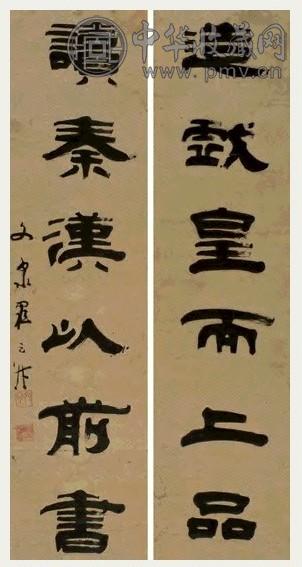 中华收藏网
www.pmv.cn
戲皇而上品
讀秦漢以前書
文泉